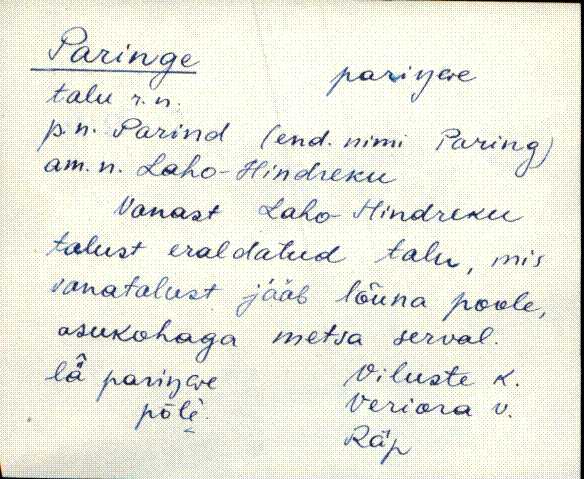 Paringe pariŋɢe
talu r.n.
p.n. Parind (end. nimi Paring)
am. n. Laho-Hindreku
Vanast Laho-Hindreku
talust eraldatud talu, mis
vanatalust jääb lõuna poole,
asukohaga metsa serval.
lä̀ pariŋɢe Viluste k.
põlè. Veriora v.
Räp